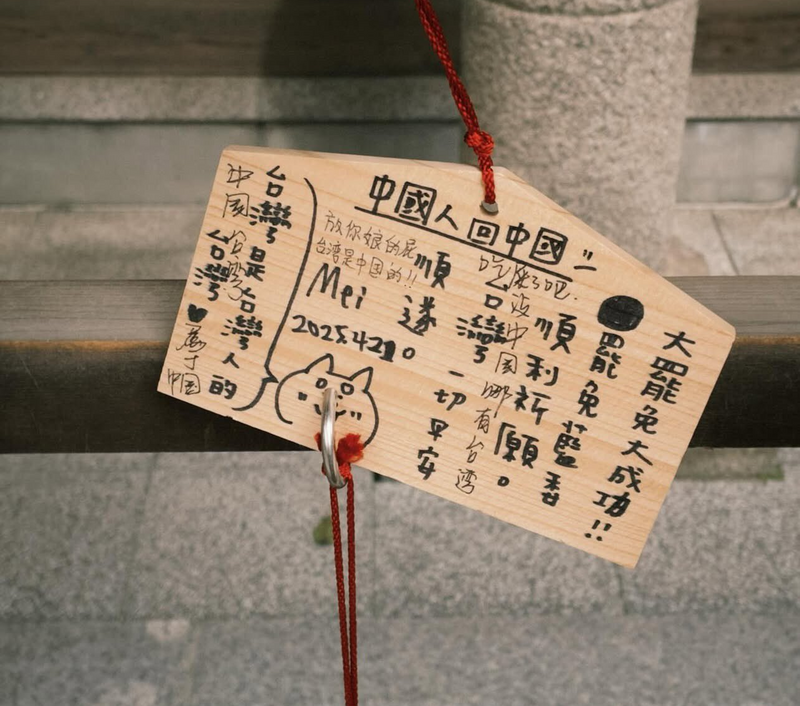 中國人回中國
大罷免大成功!!
罷免藍委
順利祈願。
没中国哪有台湾
台灣
順遂。
一切平安
放你娘的屁
台湾是中国的!!
Mei
2025.4.21
台灣是台灣人的
中国台湾
台灣
属于中国